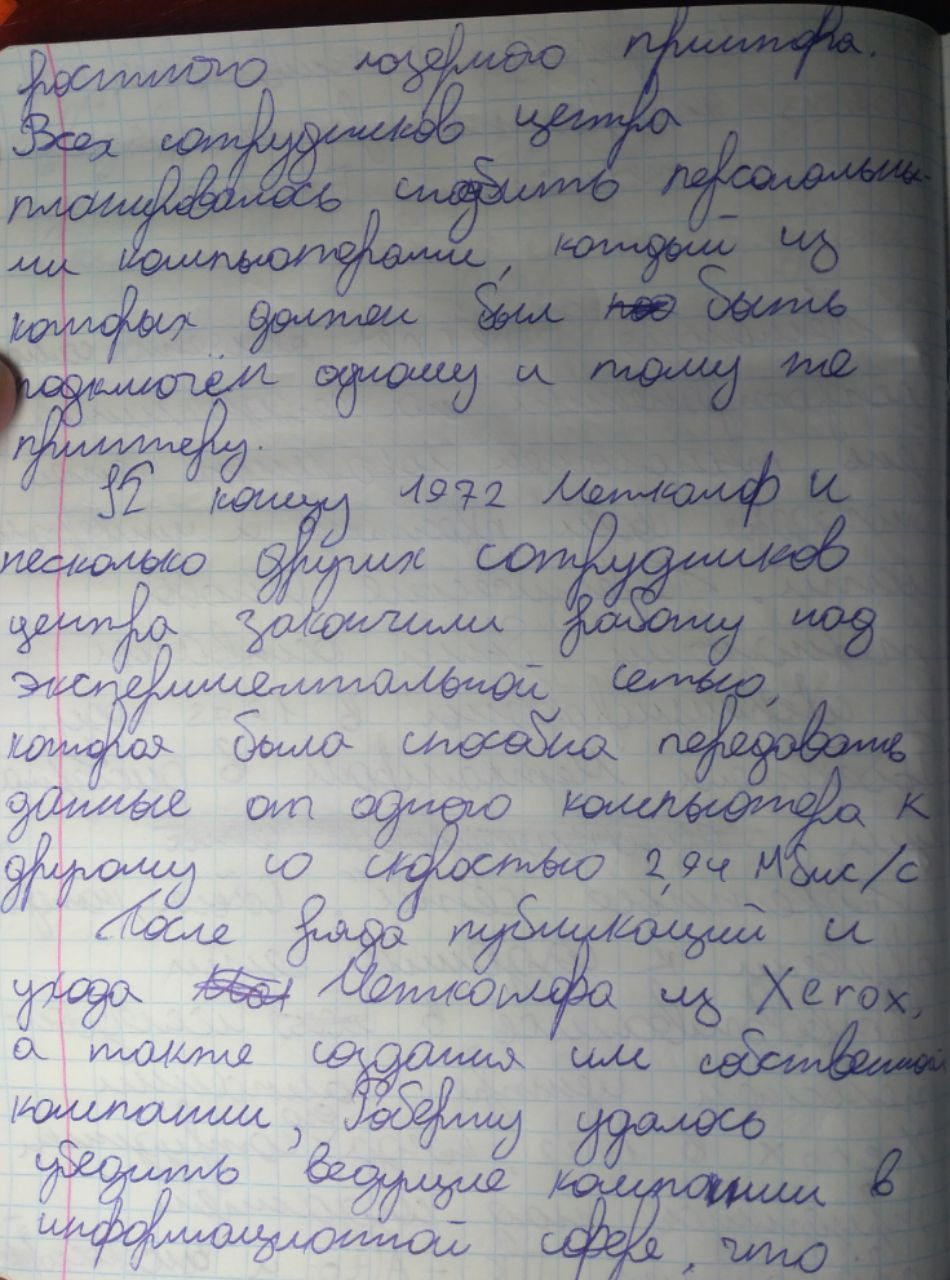 ростного лазерного принтера.
Всех сотрудников центра
планировалось снабдить персональны-
ми компьютерами, каждый из
которых должен был быть
подключён одному и тому же
принтеру.
К концу 1972 Меткалф и
несколько других сотрудников
центра закончили работу над
экспериментальной сетью,
которая была способна передавать
данные от одного компьютера к
другому со скоростью 2,94 Мбис/с
После ряда публикаций и
ухода Меткалфа из Xerox,
а также создания им собственной
компании, Роберту удалось
убедить ведущие компании в
информационной сфере, что